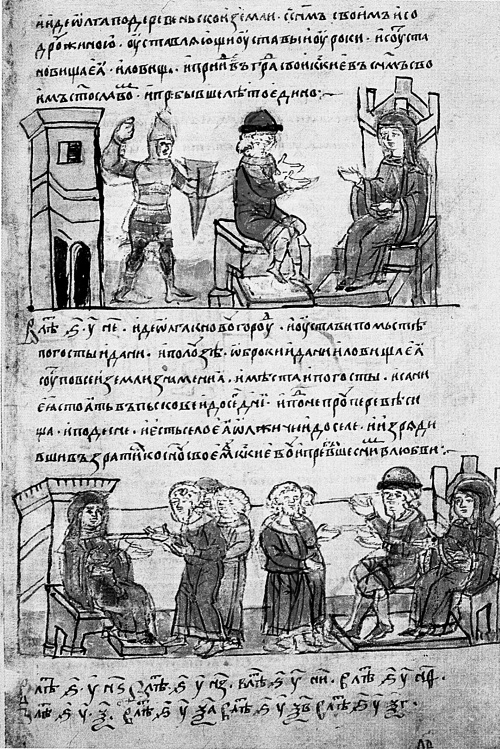 и иде ѡлга по деревеньскои земли · с сн҃мъ своимъ и со
дрожиною · оуставляющи оуставы и оуроки · и соу ста
новища еѧ · и ловища · и прииⷣ въ граⷣ свои киевъ с сн҃мъ сво
имъ ст҃ославоⷨ · и пребывше лѣто едино :~
В лѣⷮ ҂ѕ҃ · у҃ · н҃е · иде ѡлга к новогороу · и оустави по мьстѣ
погосты и дани · и по лоузѣ · ѡброки и дани и ловища еѧ
соу по всеи земли знамениа · и места и погосты · и сани
еѧ стоать въ пьскове и до сеⷣ дн҃и · и по непроу перевѣси
ща · и по десне · и есть село еѧ ѡлжичи и доселе · и изряди
вши възратиⷭ к сн҃оу своемоу в киевъ и пребⷶвше с ниⷨ в любви :~
В лѣⷮ ҂ѕ҃ · у҃ · н҃ѕ · В лѣⷮ ҂ѕ҃ · у҃ · н҃з · В лѣⷮ ҂ѕ҃ · у҃ · н҃и · В лѣⷮ ҂ѕ҃ · у҃ · н҃ѳ ·
В лѣⷮ ҂ѕ҃ · у҃ · ѯ҃ · В лѣⷮ ҂ѕ҃ · у҃ · ѯ҃а · В лѣⷮ ҂ѕ҃ · у҃ · ѯ҃в · В лѣⷮ ҂ѕ҃ · у҃ · ѯ҃г ·